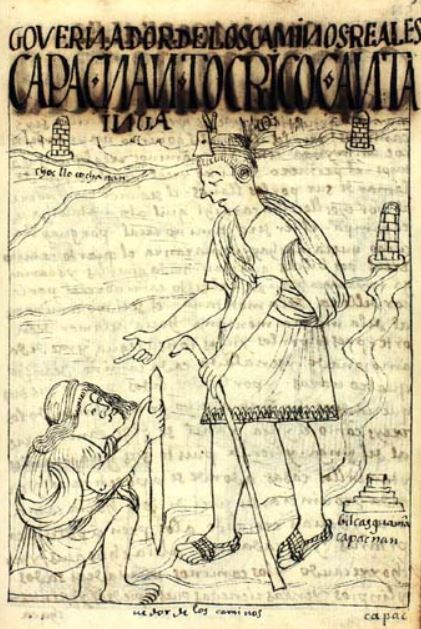 GOVERNADOR DE LOS CAMINOS REALES
CAPAC NAN TOCRICOC ANTA
INGA
chocllo cocha nan
bilcas guaman
capac nan
uedor de los caminos
capac